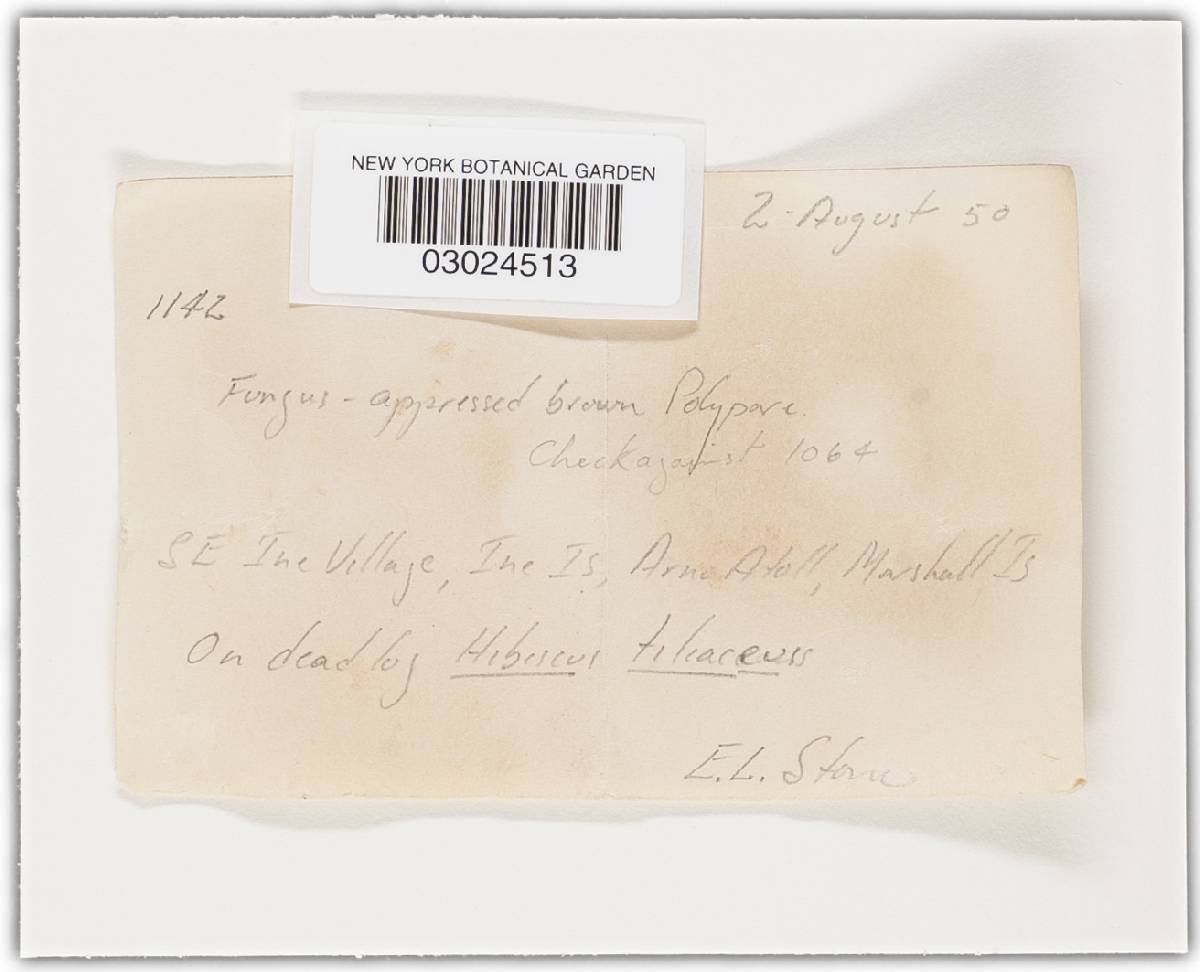 NEW YORK BOTANICAL GARDEN
03024513
2 August 50
1142
Fungus - appressed brown Polypore.
Check against 1064
SE Ine Village, Ine Is, Arno Atoll, Marshall Is
On dead log Hibiscus tiliaceus
E.L. Stone